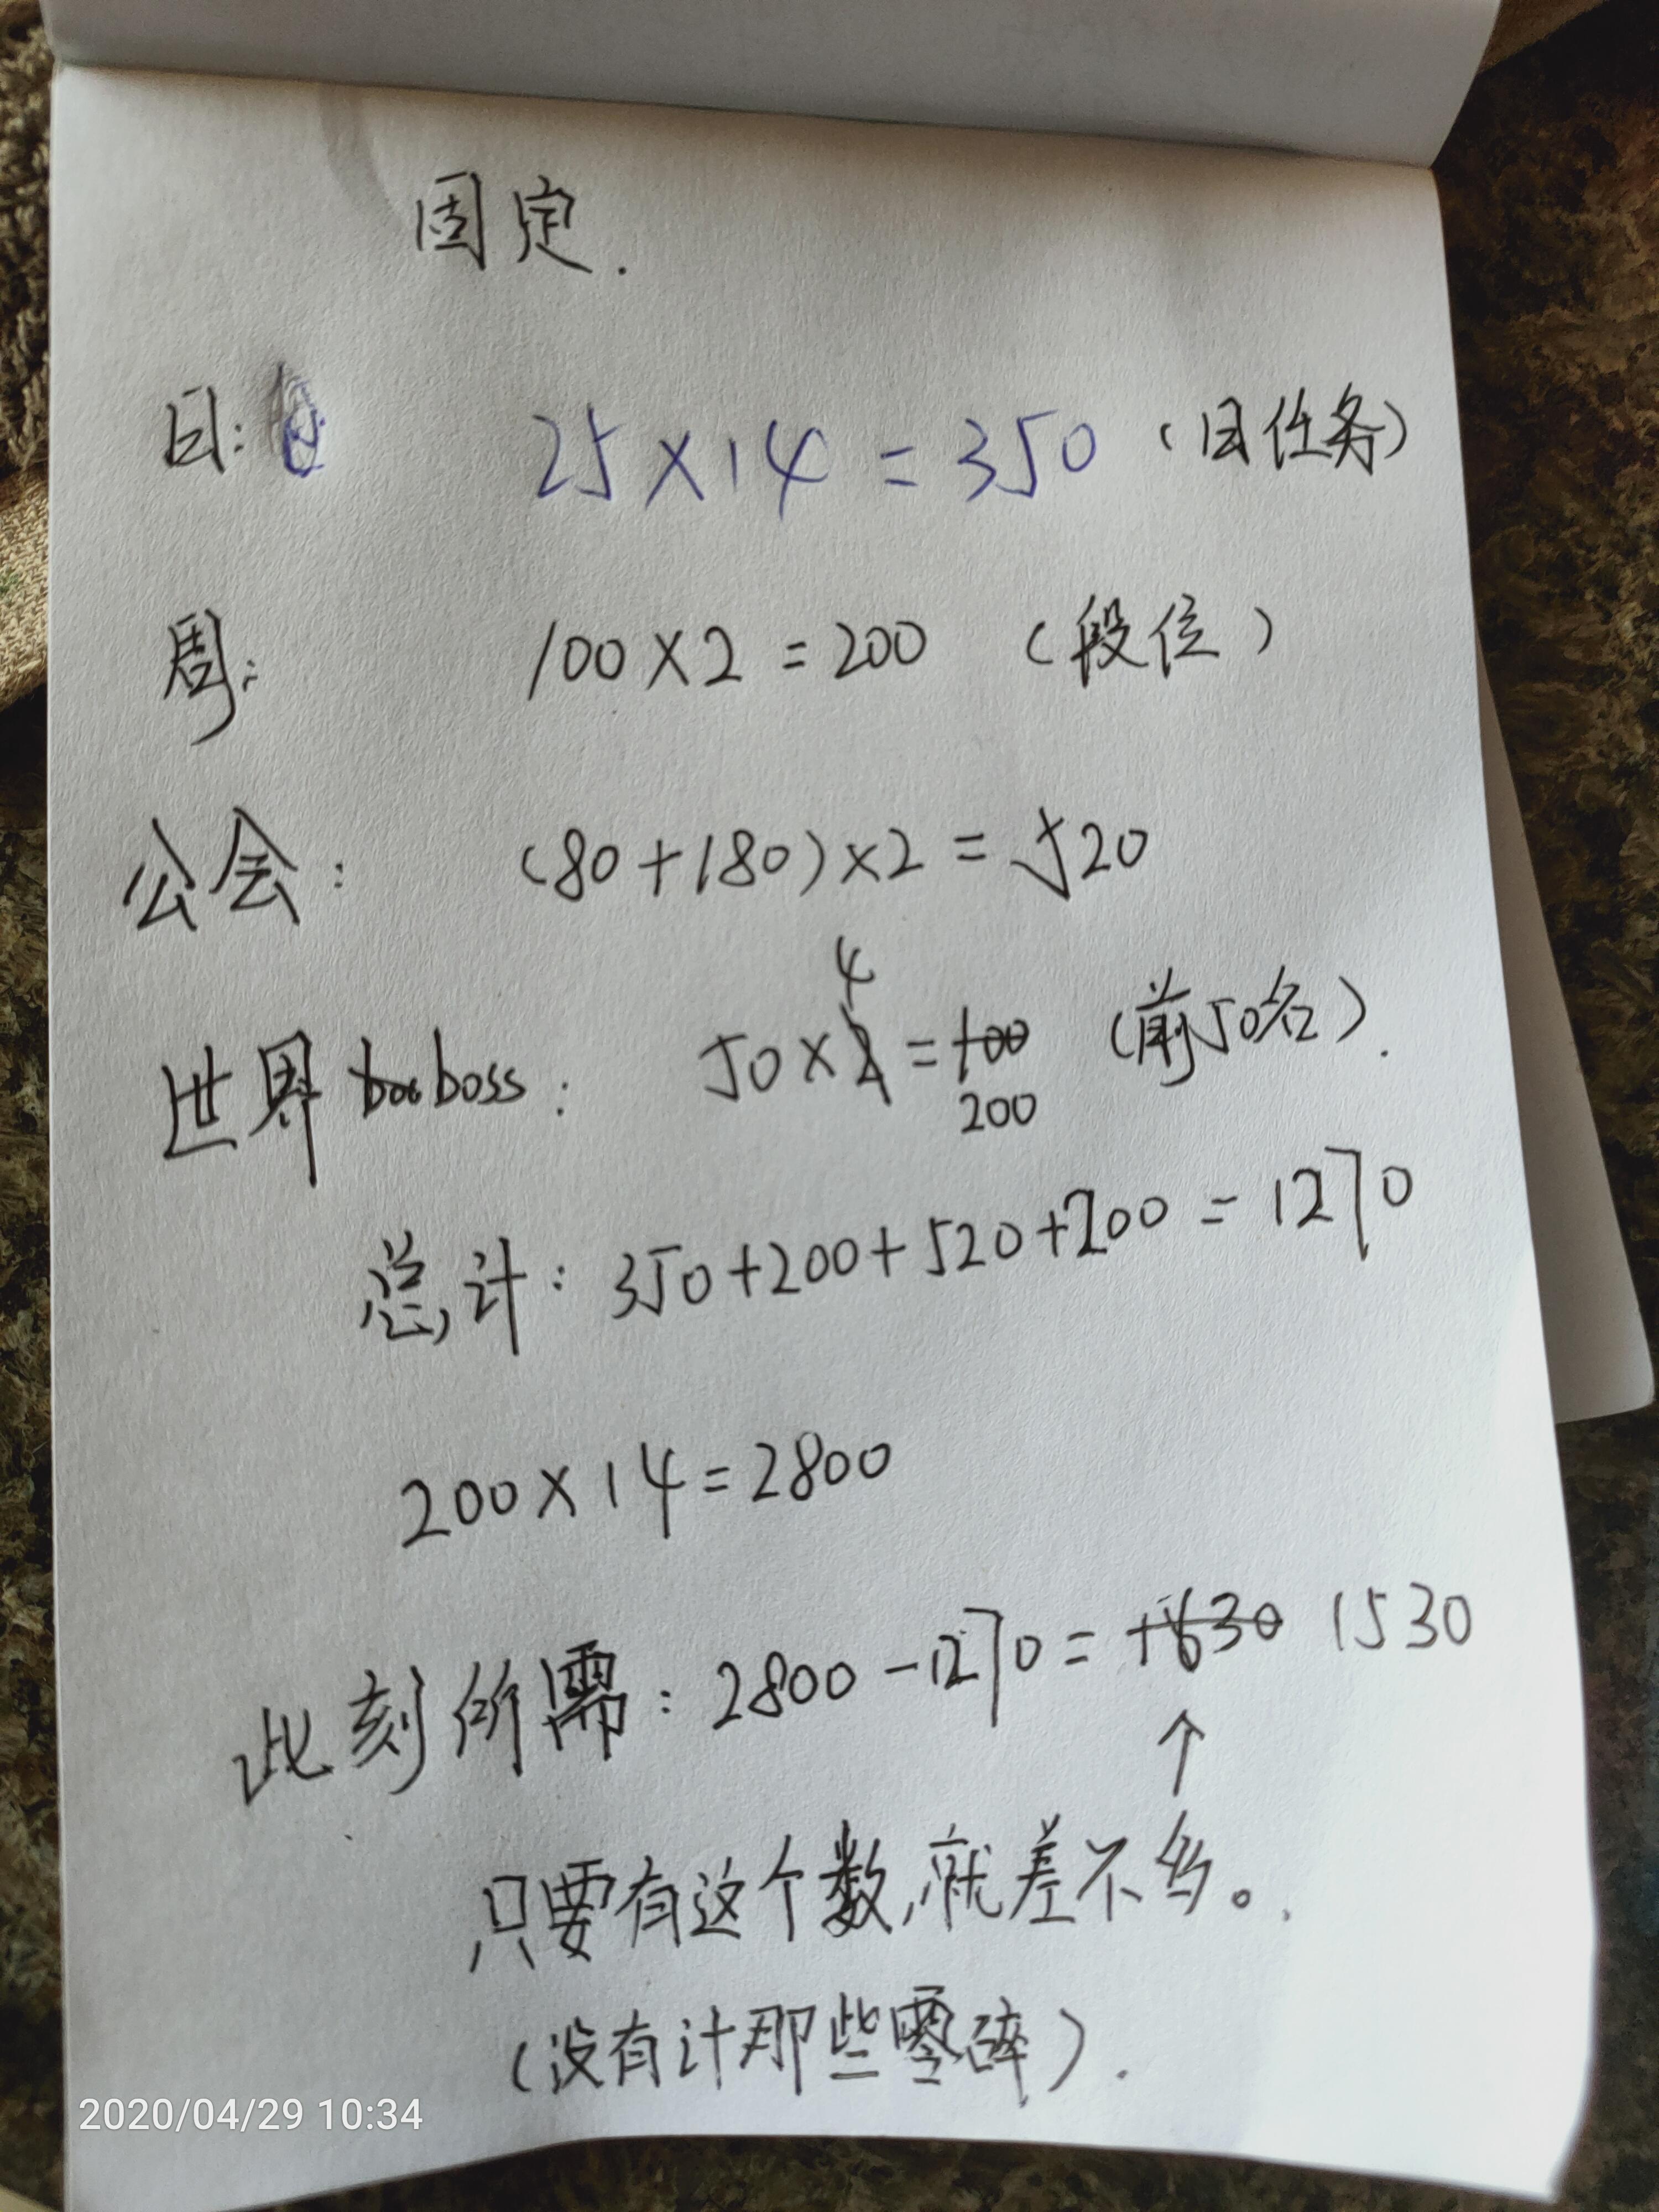 固定.
日: 25×14=350 (日任务)
周: 100×2=200 (段位)
公会: (80+180)×2=520
世界boss: 50×4=200 (前50名).
总计: 350+200+520+200=1270
200×14=2800
此刻所需: 2800-1270=1530
↑
只要有这个数,就差不多。
(没有计那些零碎).
2020/04/29 10:34